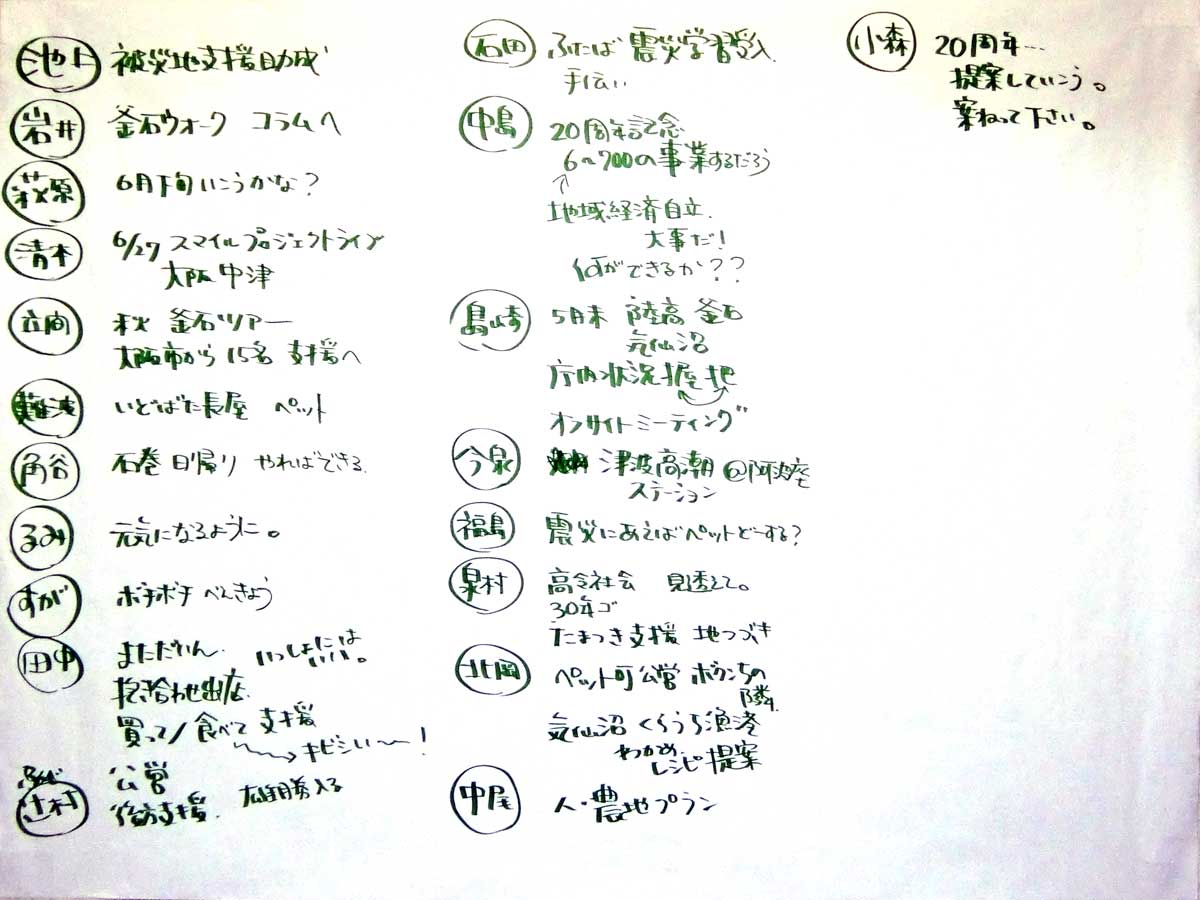 池上 被災地支援助成
岩井 釜石ウォーク コラムへ
萩原 6月下旬いこうかな?
清本 6/27 スマイルプロジェクトライブ
大阪 中津
立間 秋 釜石ツアー
大阪市から 15名 支援へ
難波 いどばた長屋 ペット
角谷 石巻 日帰り やればできる
るみ 元気になるように。
すが ボチボチ べんきょう
田中 まただいん いっしょには
いい。
抱き合わせ出店
買って/食べて 支援
キビシい〜!
辻村 公営
後方支援 雄勝入る
石田 ふたば 震災学習受入
手伝い
中島 20周年記念
6〜700の事業するだろう
↑
地域経済自立.
大事だ!
何ができるか??
島崎 5月末 陸高 釜石
気仙沼
庁内状況握把
オンサイトミーティング
今泉 津波高潮 @阿波座
ステーション
福島 震災にあえばペットどーする?
泉村 高令社会 見透えて。
30年ゴ
たまつき支援 地つづき
北岡 ペット可公営 ボクんちの
隣.
気仙沼 くらうち漁港
わかめ
レシピ提案
中尾 人・農地プラン
小森 20周年…
提案していこう。
案ねって下さい。